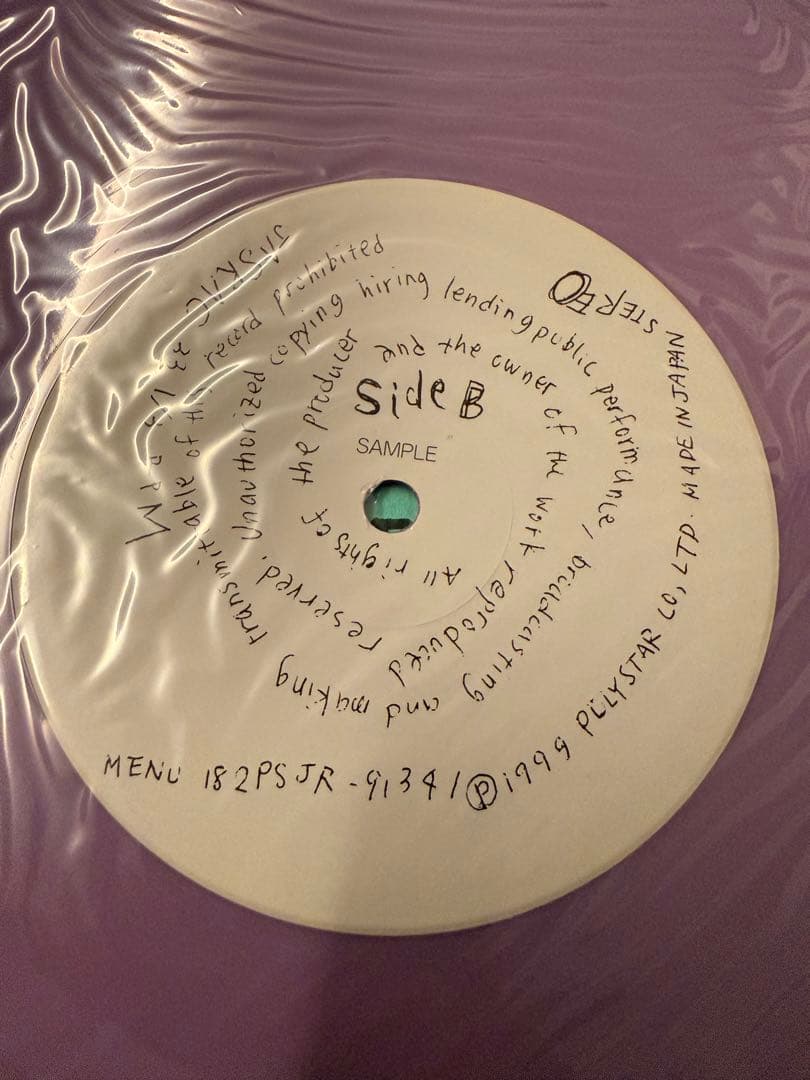 Side B
SAMPLE
All rights of the producer and the owner of the work reproduced reserved. Unauthorized copying hiring lending public performance, broadcasting and making transmitable of this record prohibited
STEREO
MENU 182PSJR-9134/Ⓟ1999 POLYSTAR CO, LTD. MADE IN JAPAN